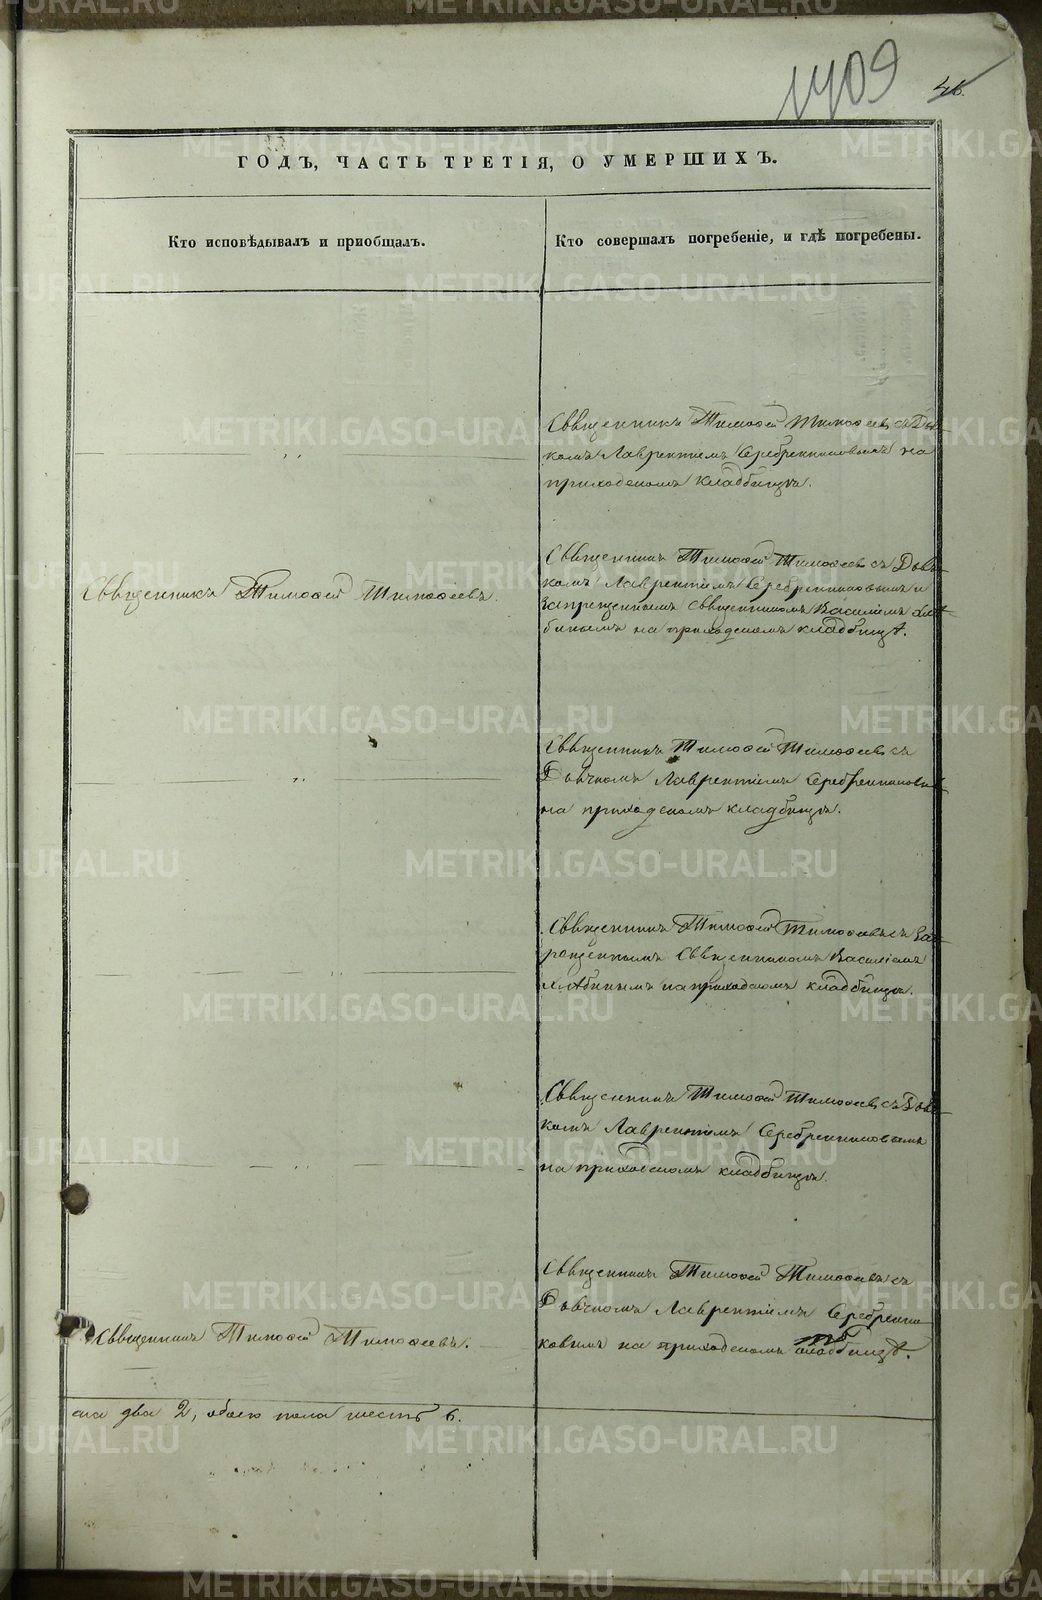 1409
46.
ГОДЪ, ЧАСТЬ ТРЕТІЯ, О УМЕРШИХЪ.
Кто исповѣдывалъ и пріобщалъ.
Кто совершалъ погребеніе, и гдѣ погребены.
Священникъ Тимофей Тимофеевъ съ Дья-
комъ Лаврентіемъ Серебренниковымъ на
приходскомъ кладбищѣ.
Священникъ Тимофей Тимофеевъ.
Священникъ Тимофей Тимофеевъ съ Дьяч-
комъ Лаврентіемъ Серебренниковымъ и
запрещеннымъ священникомъ Василіемъ
на приходскомъ кладбищѣ.
Священникъ Тимофей Тимофеевъ съ
Дьячкомъ Лаврентіемъ Серебренниковымъ
на приходскомъ кладбищѣ.
Священникъ Тимофей Тимофеевъ съ
священникомъ Василіемъ
на приходскомъ кладбищѣ.
Священникъ Тимофей Тимофеевъ съ Дьяч-
комъ Лаврентіемъ Серебренниковымъ
на приходскомъ кладбищѣ.
Священникъ Тимофей Тимофеевъ.
Священникъ Тимофей Тимофеевъ съ
Дьячкомъ Лаврентіемъ Серебренни-
ковымъ на приходскомъ кладбищѣ.
ска два 2, обоего пола шесть 6.
METRIKI.GASO-URAL.RU